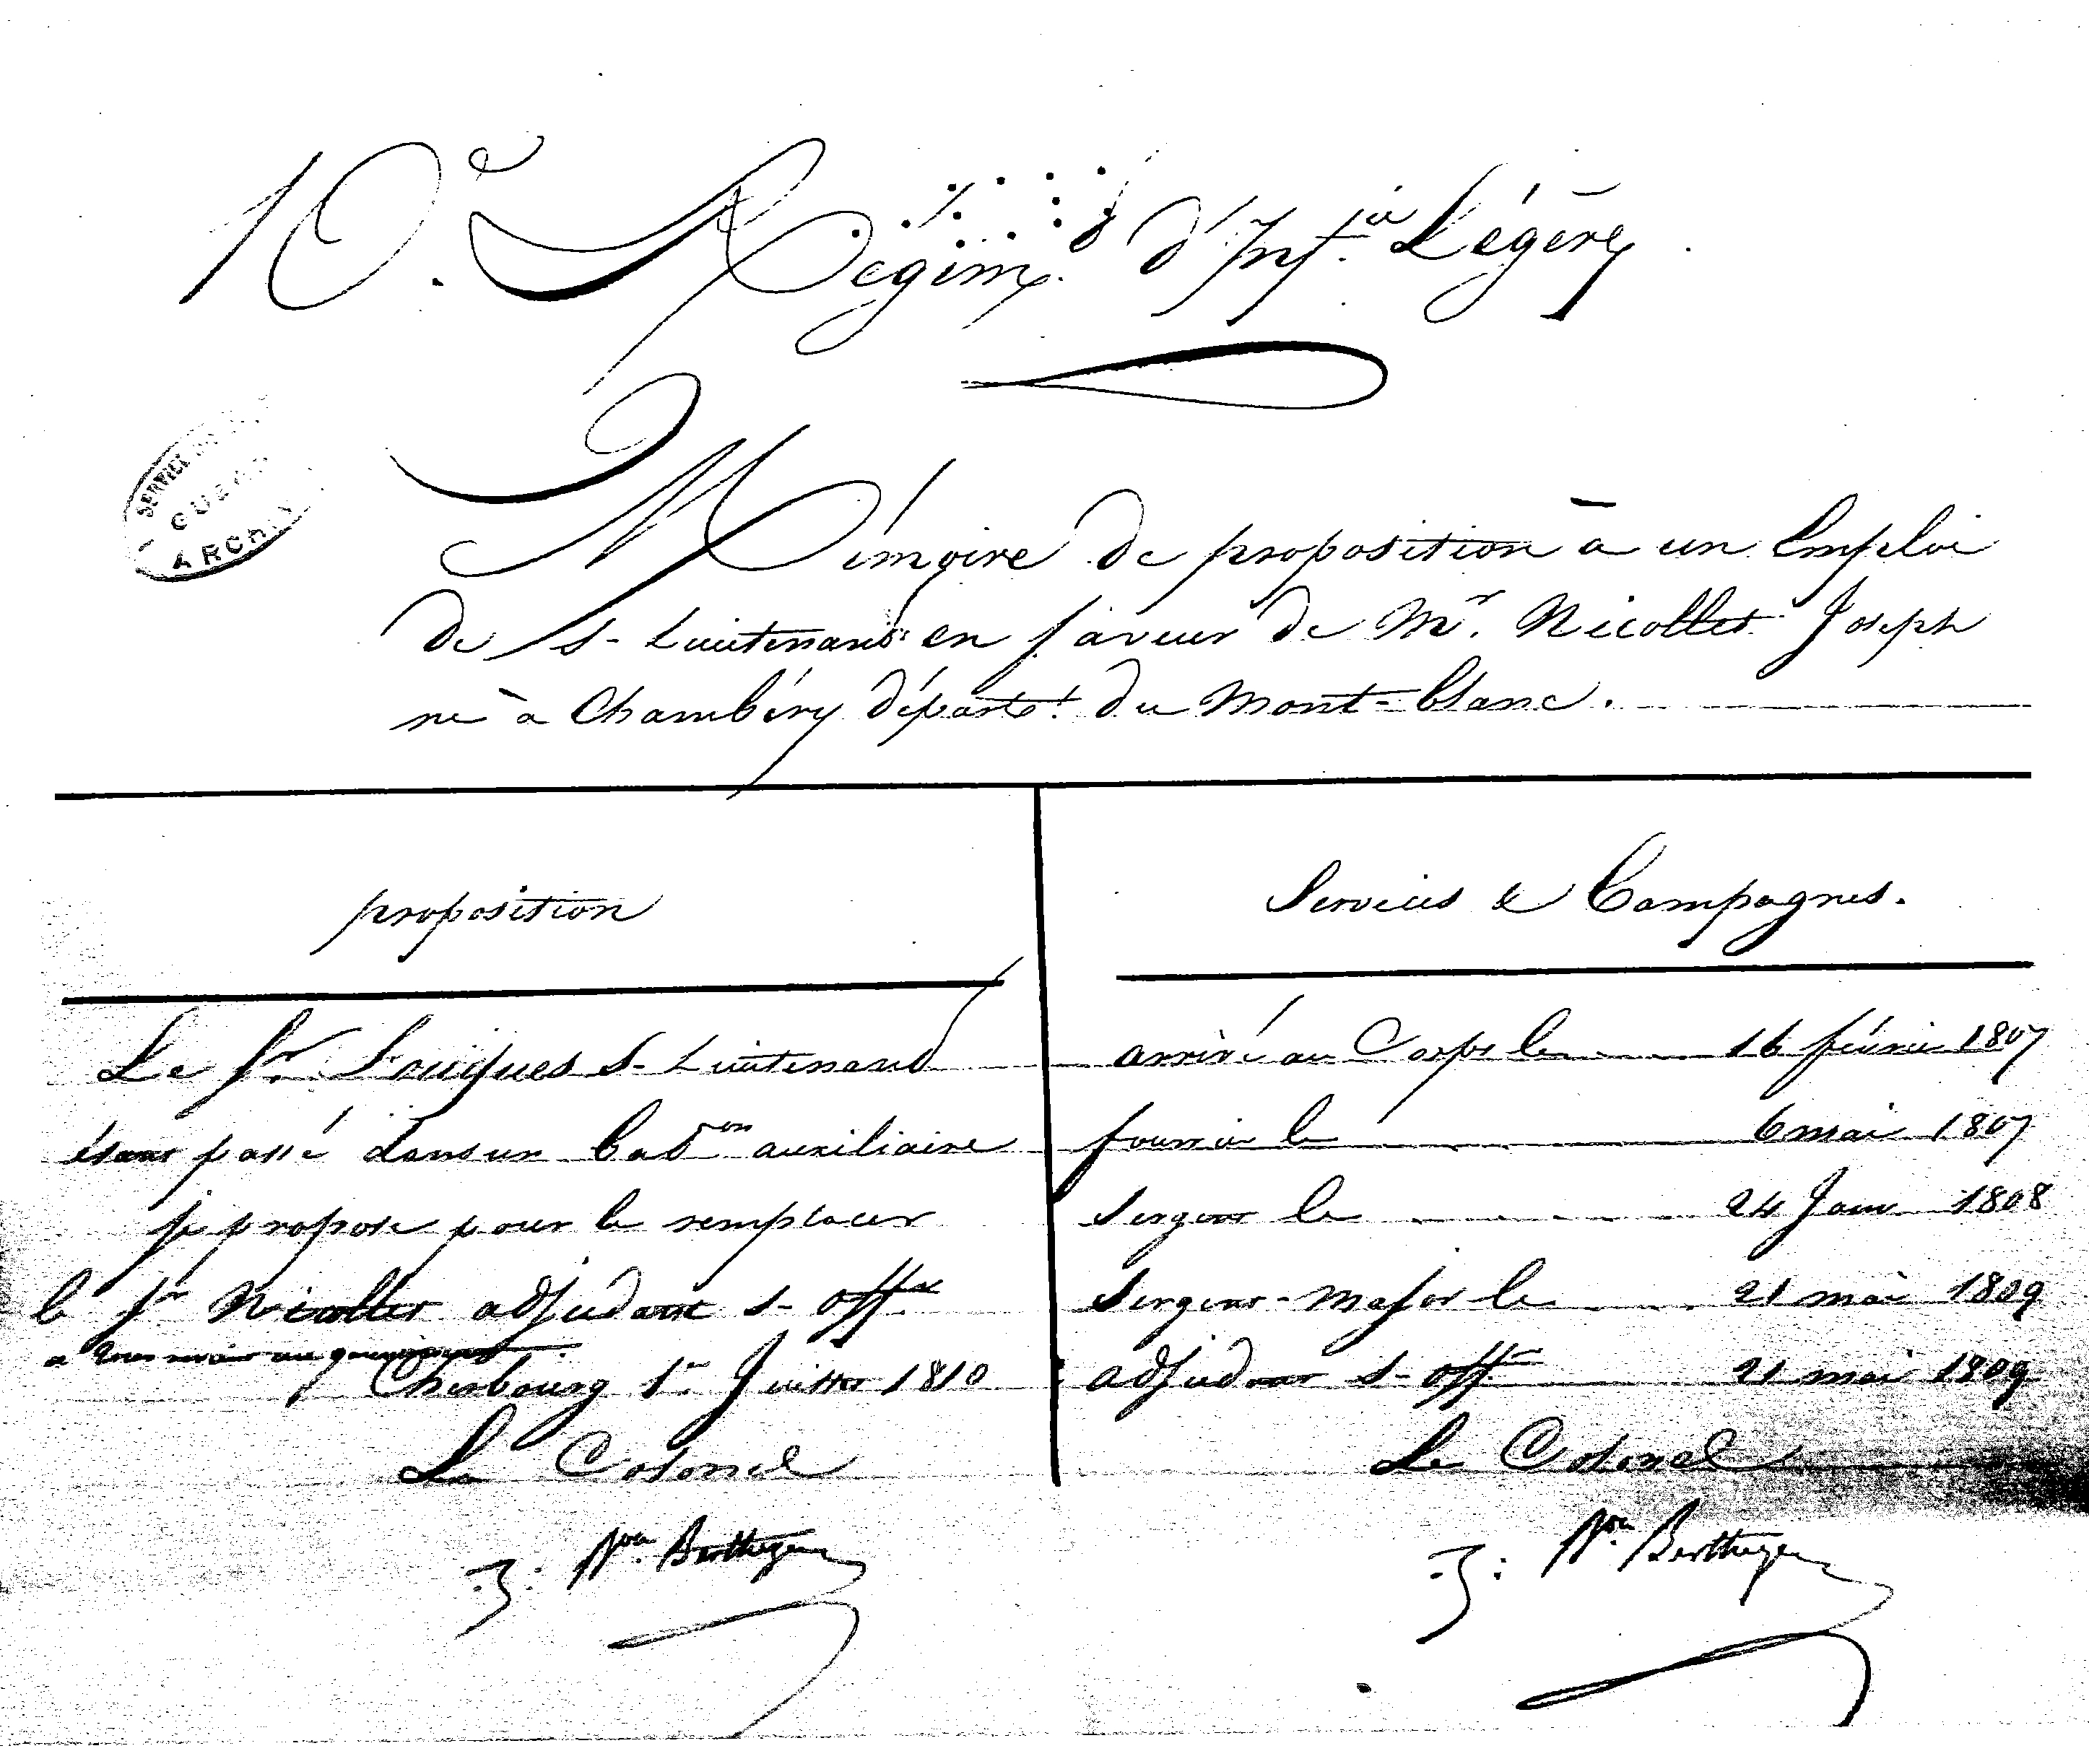 10.e Régim.t d'Inf.ie Légère
SERVICE
GUER
ARCHIV
Mémoire de proposition à un Emploi
de S-Lieutenant en faveur de Mr. Nicollet Joseph
né à Chambéry départ.t du Mont-blanc.
proposition
Le Sr. S-Lieutenant
étant passé dans un bat.on auxiliaire
je propose pour le remplacer
le Sr Nicollet adjudant S-off.er
Cherbourg 1er Juillet 1810
Le Colonel
B.on Berthezene
Services & Campagnes.
arrivé au Corps le 16 février 1807
fourrier le 6 mai 1807
Sergent le 24 Janv 1808
Sergent-Major le 21 mai 1809
adjudant S-off.er 21 mai 1809
Le Colonel
B.on Berthezene